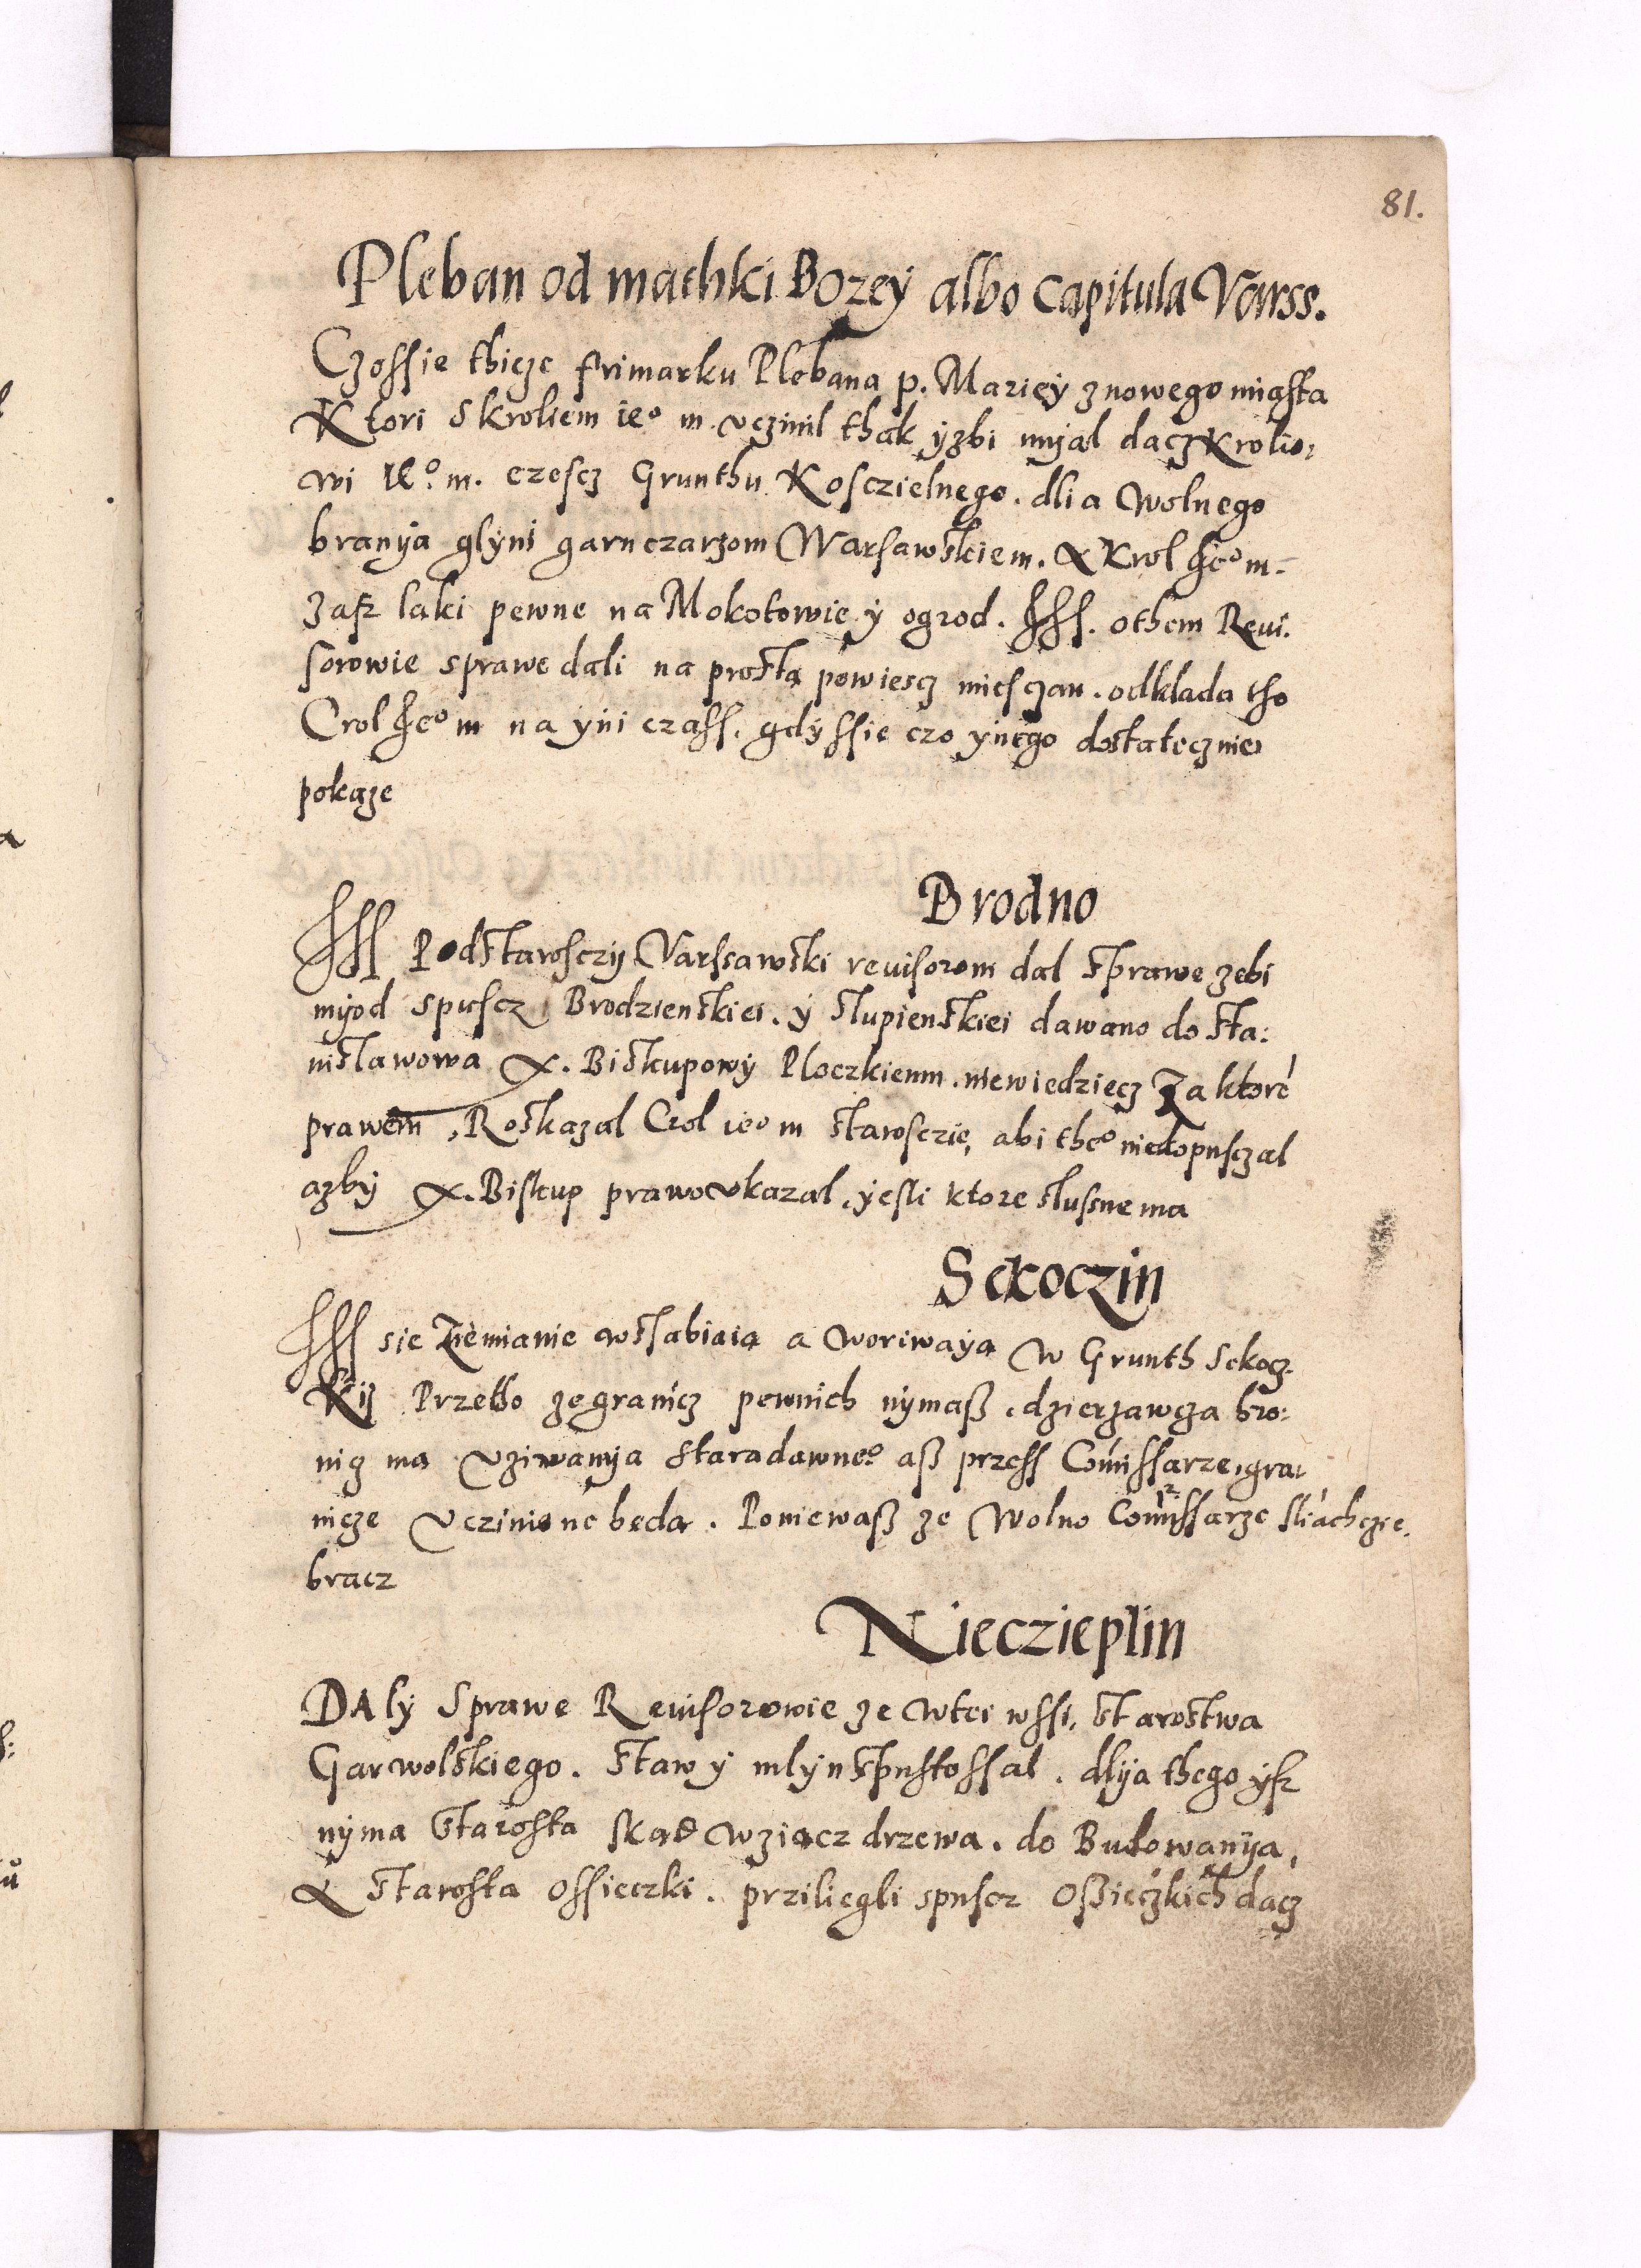 81.
Pleban od mathki Bozeÿ albo capitula Varss.
Czossie thicze frimarku Plebana p. Marieÿ znowego miasta
Ktori skroliem ie° m. vczinil thak ÿzbi mÿal dacz Krolio,
wi Ie° m. czescz Grunthu Kosczielnego. dlia Wolnego
branÿa glÿni garnczarzom Warsawskiem. A Krol Ie° m.
zasz laki pewne na Mokotowie ÿ ogrod. Iss. othem Reui.
sorowie sprawe dali na prosta powiescz miesczan. odklada tho
Crol Ie° m na ÿni czass. gdÿ ssie czo ÿnego dostatecznie
pokaze
Brodno
Iss Podstarosczÿ Varssawski reuisorom dal sprawe zebi
mÿod spuscz Brodzienskiei. ÿ slupienskiei dawano do sta:
nislawowa X. Biskupowÿ Ploczkiemu. niewiedziecz Za ktore
prawem, Roskazal Crol ie° m staroscie, abi the° niedopusczal
azbÿ X. Biskup prawo vkazal, ÿesli ktore slussne ma
Sckoczin
Iss sie Ziemianie wstabiaia a worÿwaÿa W Grunth Sckocz.
Kÿ Przetho ze granicz pewnich nÿmasz. dzierzawcza bro:
nicz ma vziwanÿa staradawne° asz przess Comissarze, gra,
nicze vczinione beda. Poniewasz ze Wolno Comissarze sliachczie.
bracz
Nieczieplin
DAlÿ Sprawe Reuisorowie ze wtei wssi, starostwa
Garwolskiego. staw ÿ mlÿn spustossal. dlÿa thego ÿsz
nÿma starosta skad wziacz drzewa. do Budowanÿa,
A starosta ossieczki. priliegli spuscz Osieczkich dacz